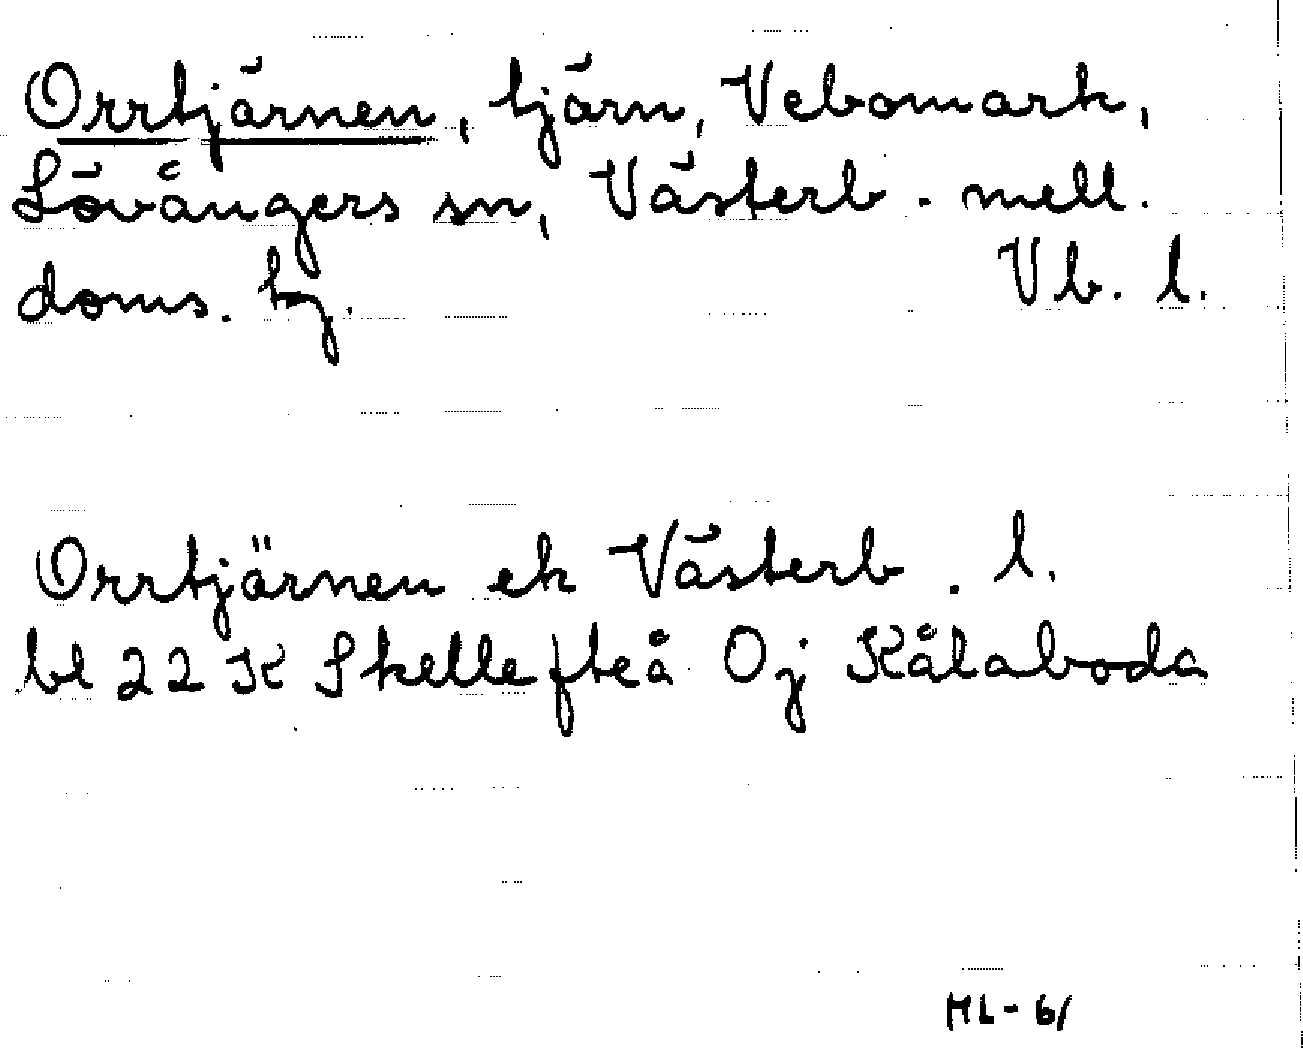 Orrtjärnen, tjärn, Vebomark,
Lövångers sn, Västerb. mell.
doms. tg. Vb. l.
Orrtjärnen ek Västerb. l.
bl 22 K Skellefteå Oj Kålaboda
HL - 61